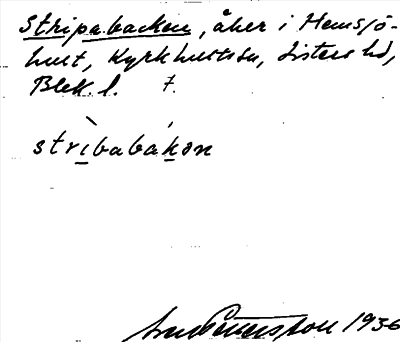 Stripabacken, åker i Hemsjö-
hult, Kyrkhultssn, Listers hd,
Blek. l. 7.
strìbabákan
Pettersson 1936